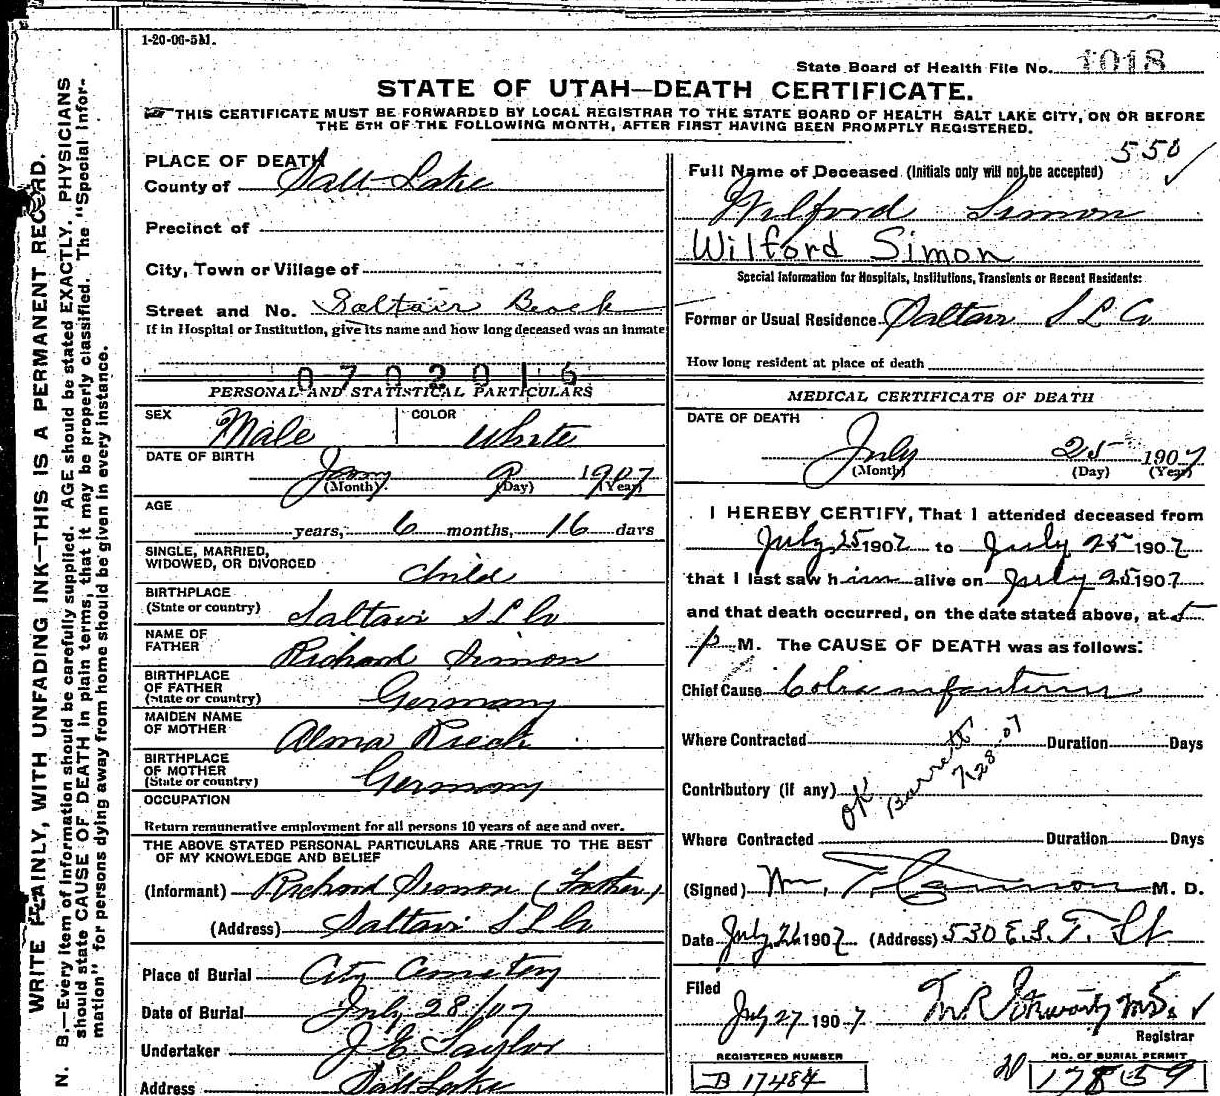 1-20-06-5M.
State Board of Health File No. 1018
STATE OF UTAH—DEATH CERTIFICATE.
THIS CERTIFICATE MUST BE FORWARDED BY LOCAL REGISTRAR TO THE STATE BOARD OF HEALTH SALT LAKE CITY, ON OR BEFORE
THE 5TH OF THE FOLLOWING MONTH, AFTER FIRST HAVING BEEN PROMPTLY REGISTERED.
WRITE PLAINLY, WITH UNFADING INK—THIS IS A PERMANENT RECORD.
N. B.—Every item of information should be carefully supplied. AGE should be stated EXACTLY. PHYSICIANS
should state CAUSE OF DEATH in plain terms, that it may be properly classified. The "Special Infor-
mation" for persons dying away from home should be given in every instance.
PLACE OF DEATH
County of Salt Lake
Precinct of
City, Town or Village of
Street and No. Saltair Beach
If in Hospital or Institution, give its name and how long deceased was an inmate
0702016
PERSONAL AND STATISTICAL PARTICULARS
SEX Male COLOR White
DATE OF BIRTH
Jany 9 1907
(Month) (Day) (Year)
AGE
years, 6 months, 16 days
SINGLE, MARRIED,
WIDOWED, OR DIVORCED Child
BIRTHPLACE
(State or country) Saltair S L Co
NAME OF
FATHER Richard Simon
BIRTHPLACE
OF FATHER
(State or country) Germany
MAIDEN NAME
OF MOTHER Alma Rieck
BIRTHPLACE
OF MOTHER
(State or country) Germany
OCCUPATION
Return remunerative employment for all persons 10 years of age and over.
THE ABOVE STATED PERSONAL PARTICULARS ARE TRUE TO THE BEST
OF MY KNOWLEDGE AND BELIEF
(Informant) Richard Simon (Father)
(Address) Saltair S L Co
Place of Burial City Cemetery
Date of Burial July 28/07
Undertaker J E Taylor
Address Salt Lake
550 ✓
Full Name of Deceased (Initials only will not be accepted)
Wilford Simon
Wilford Simon
Special Information for Hospitals, Institutions, Transients or Recent Residents:
Former or Usual Residence Saltair S L Co
How long resident at place of death
MEDICAL CERTIFICATE OF DEATH
DATE OF DEATH
July 25 1907
(Month) (Day) (Year)
I HEREBY CERTIFY, That I attended deceased from
July 25 1907 to July 25 1907
that I last saw him alive on July 25 1907
and that death occurred, on the date stated above, at 5
p M. The CAUSE OF DEATH was as follows:
Chief Cause
Where Contracted Duration Days
Contributory (if any)
OK Barrett 7-28-07
Where Contracted Duration Days
(Signed) Wm. T. Cannon M. D.
Date July 26 1907 (Address) 530 E. S. T. St
Filed
July 27 1907
Registrar
REGISTERED NUMBER
B 17484
NO. OF BURIAL PERMIT
20 17859